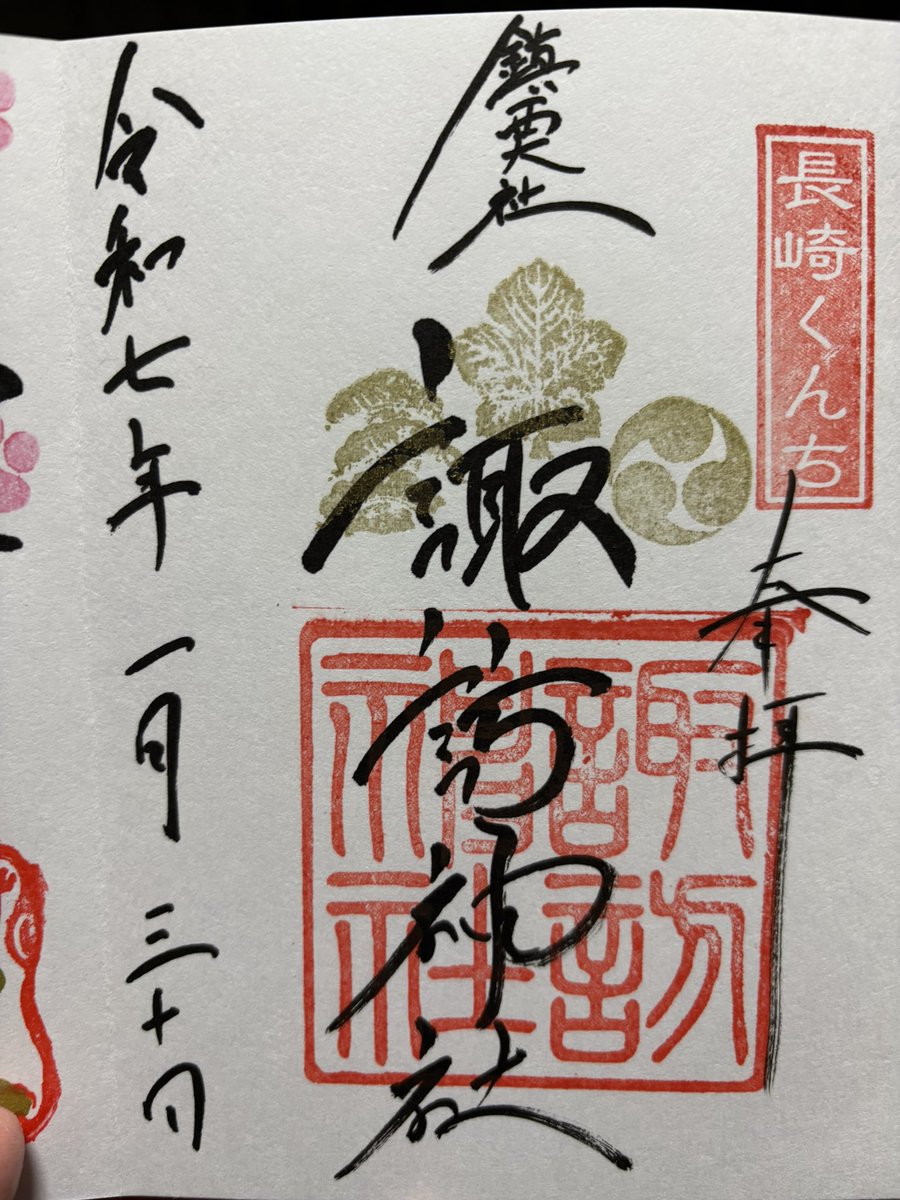 長崎くんち
奉拝
鎮西大社
諏訪神社
諏訪
神社
令和七年一月三十日